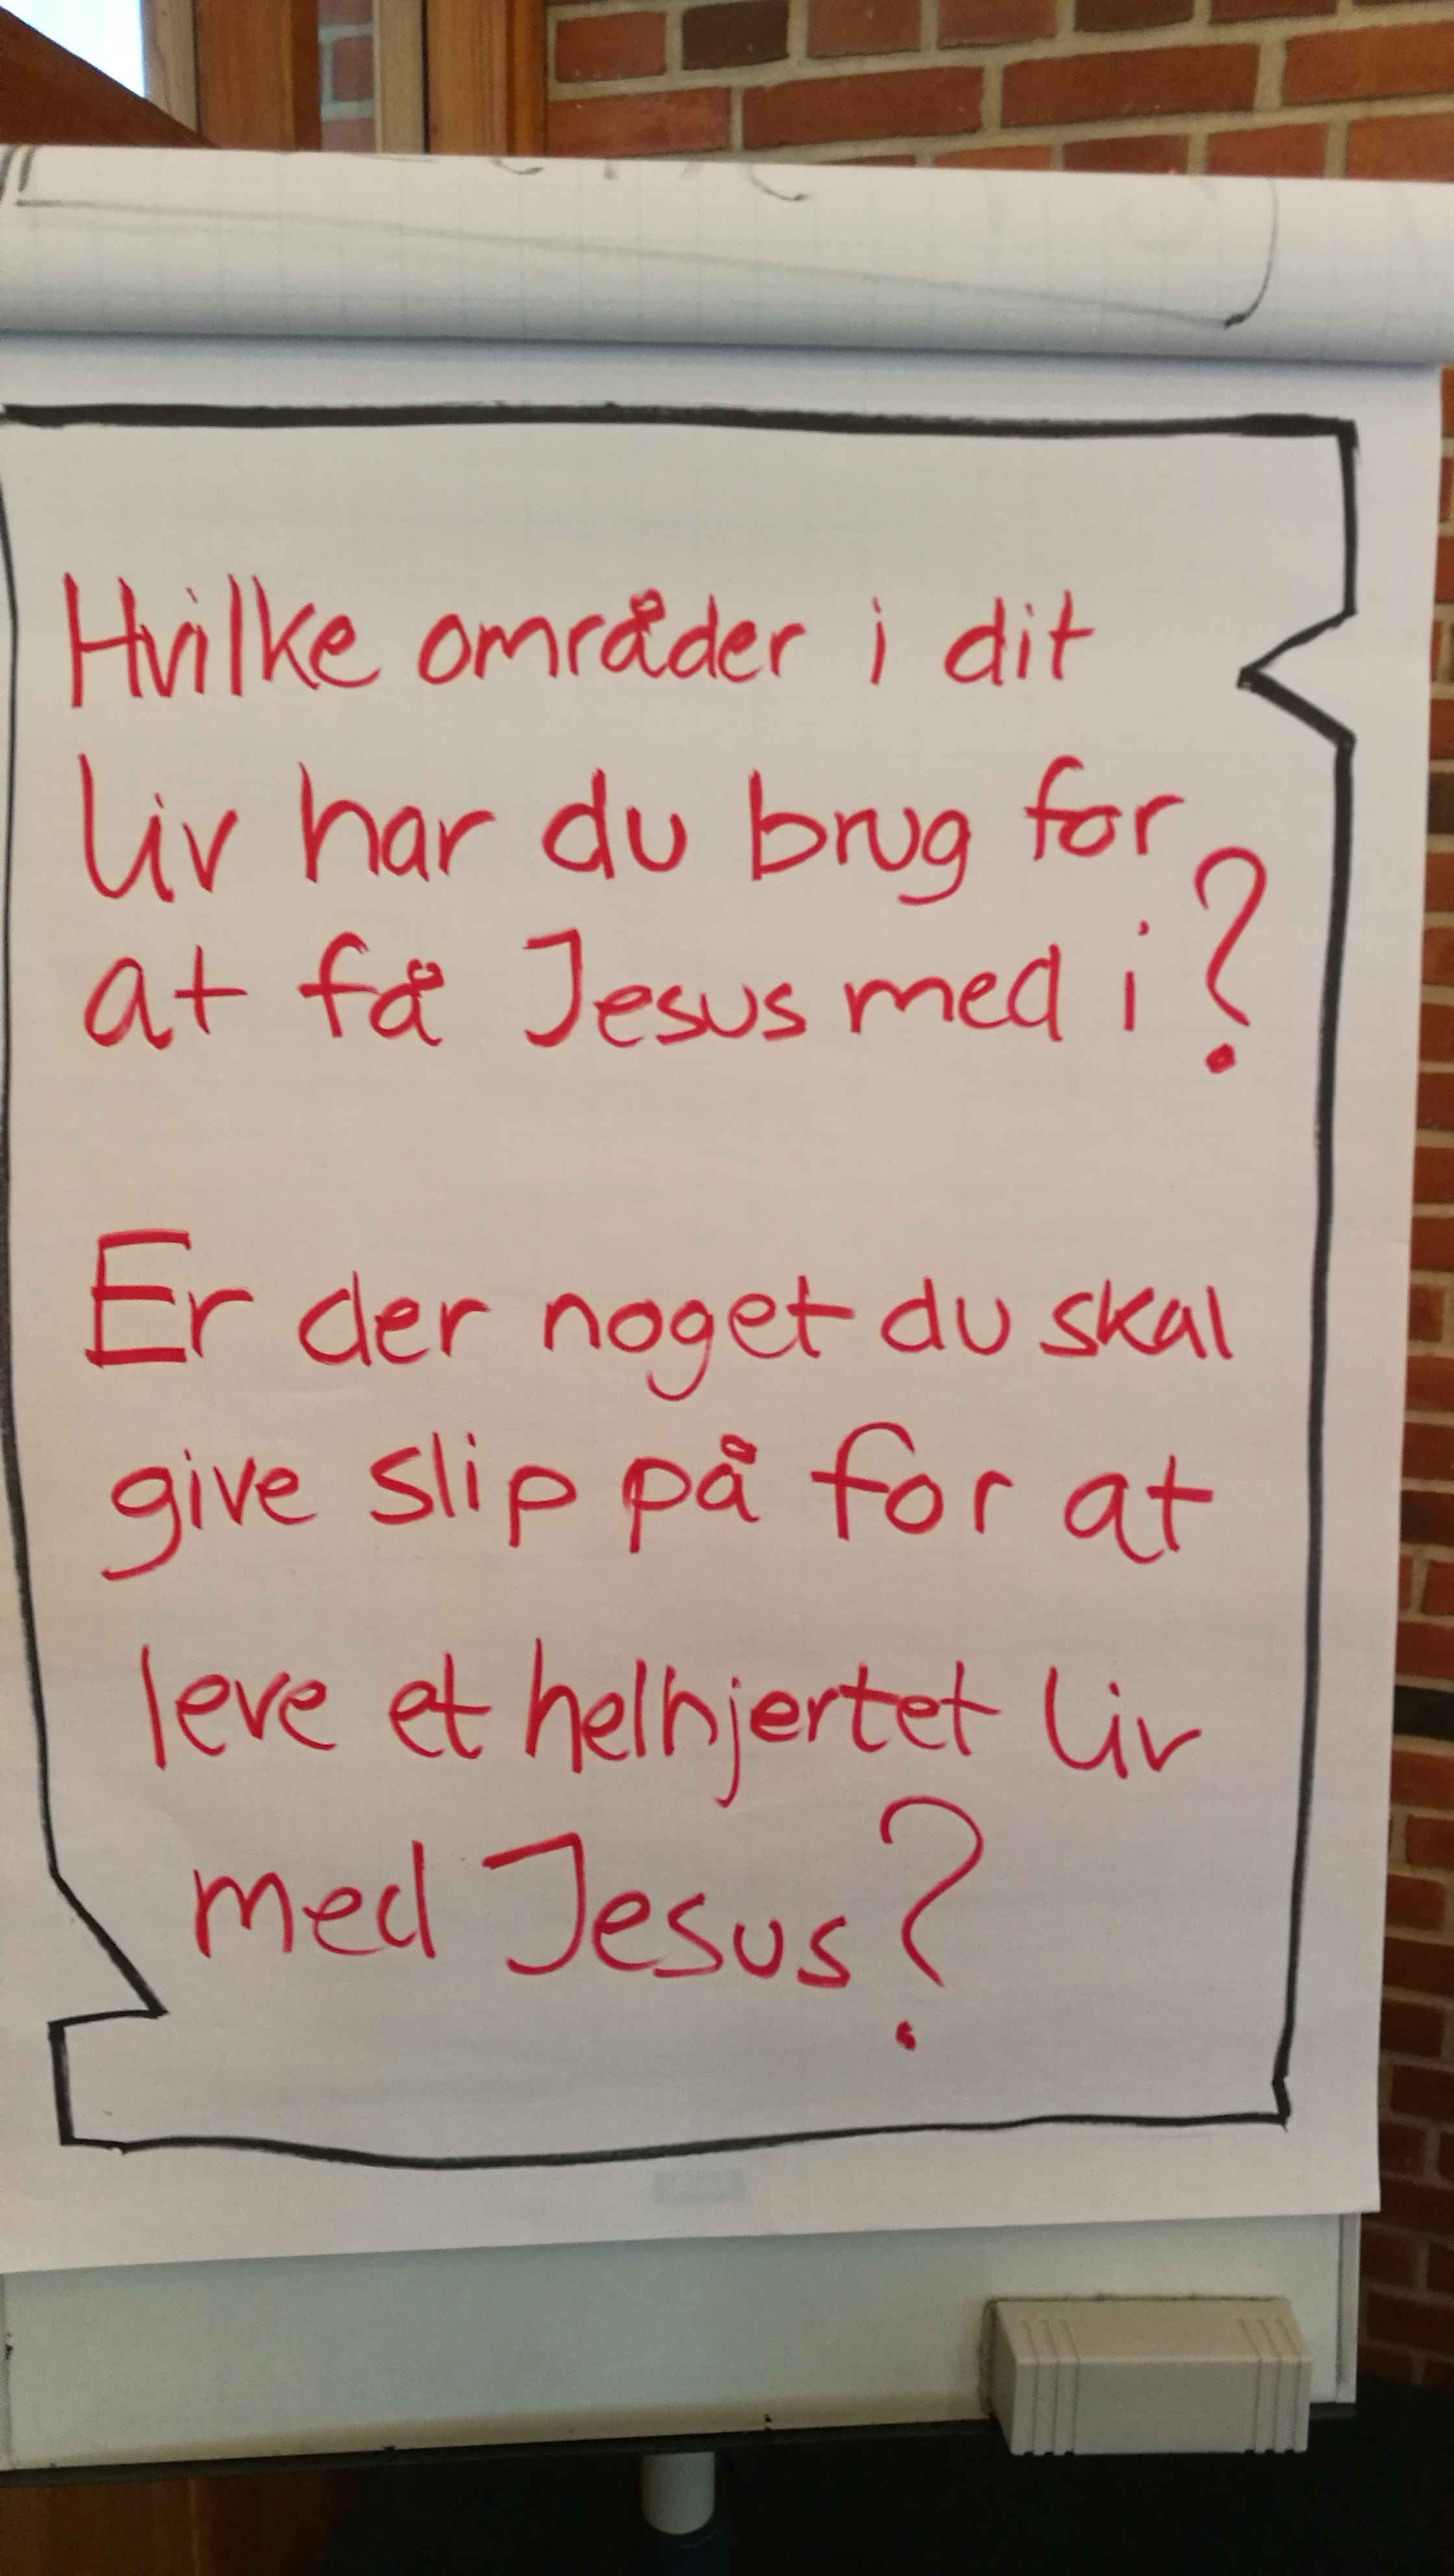 Hvilke områder i dit
liv har du brug for
at få Jesus med i?
Er der noget du skal
give slip på for at
leve et helhjertet liv
med Jesus?